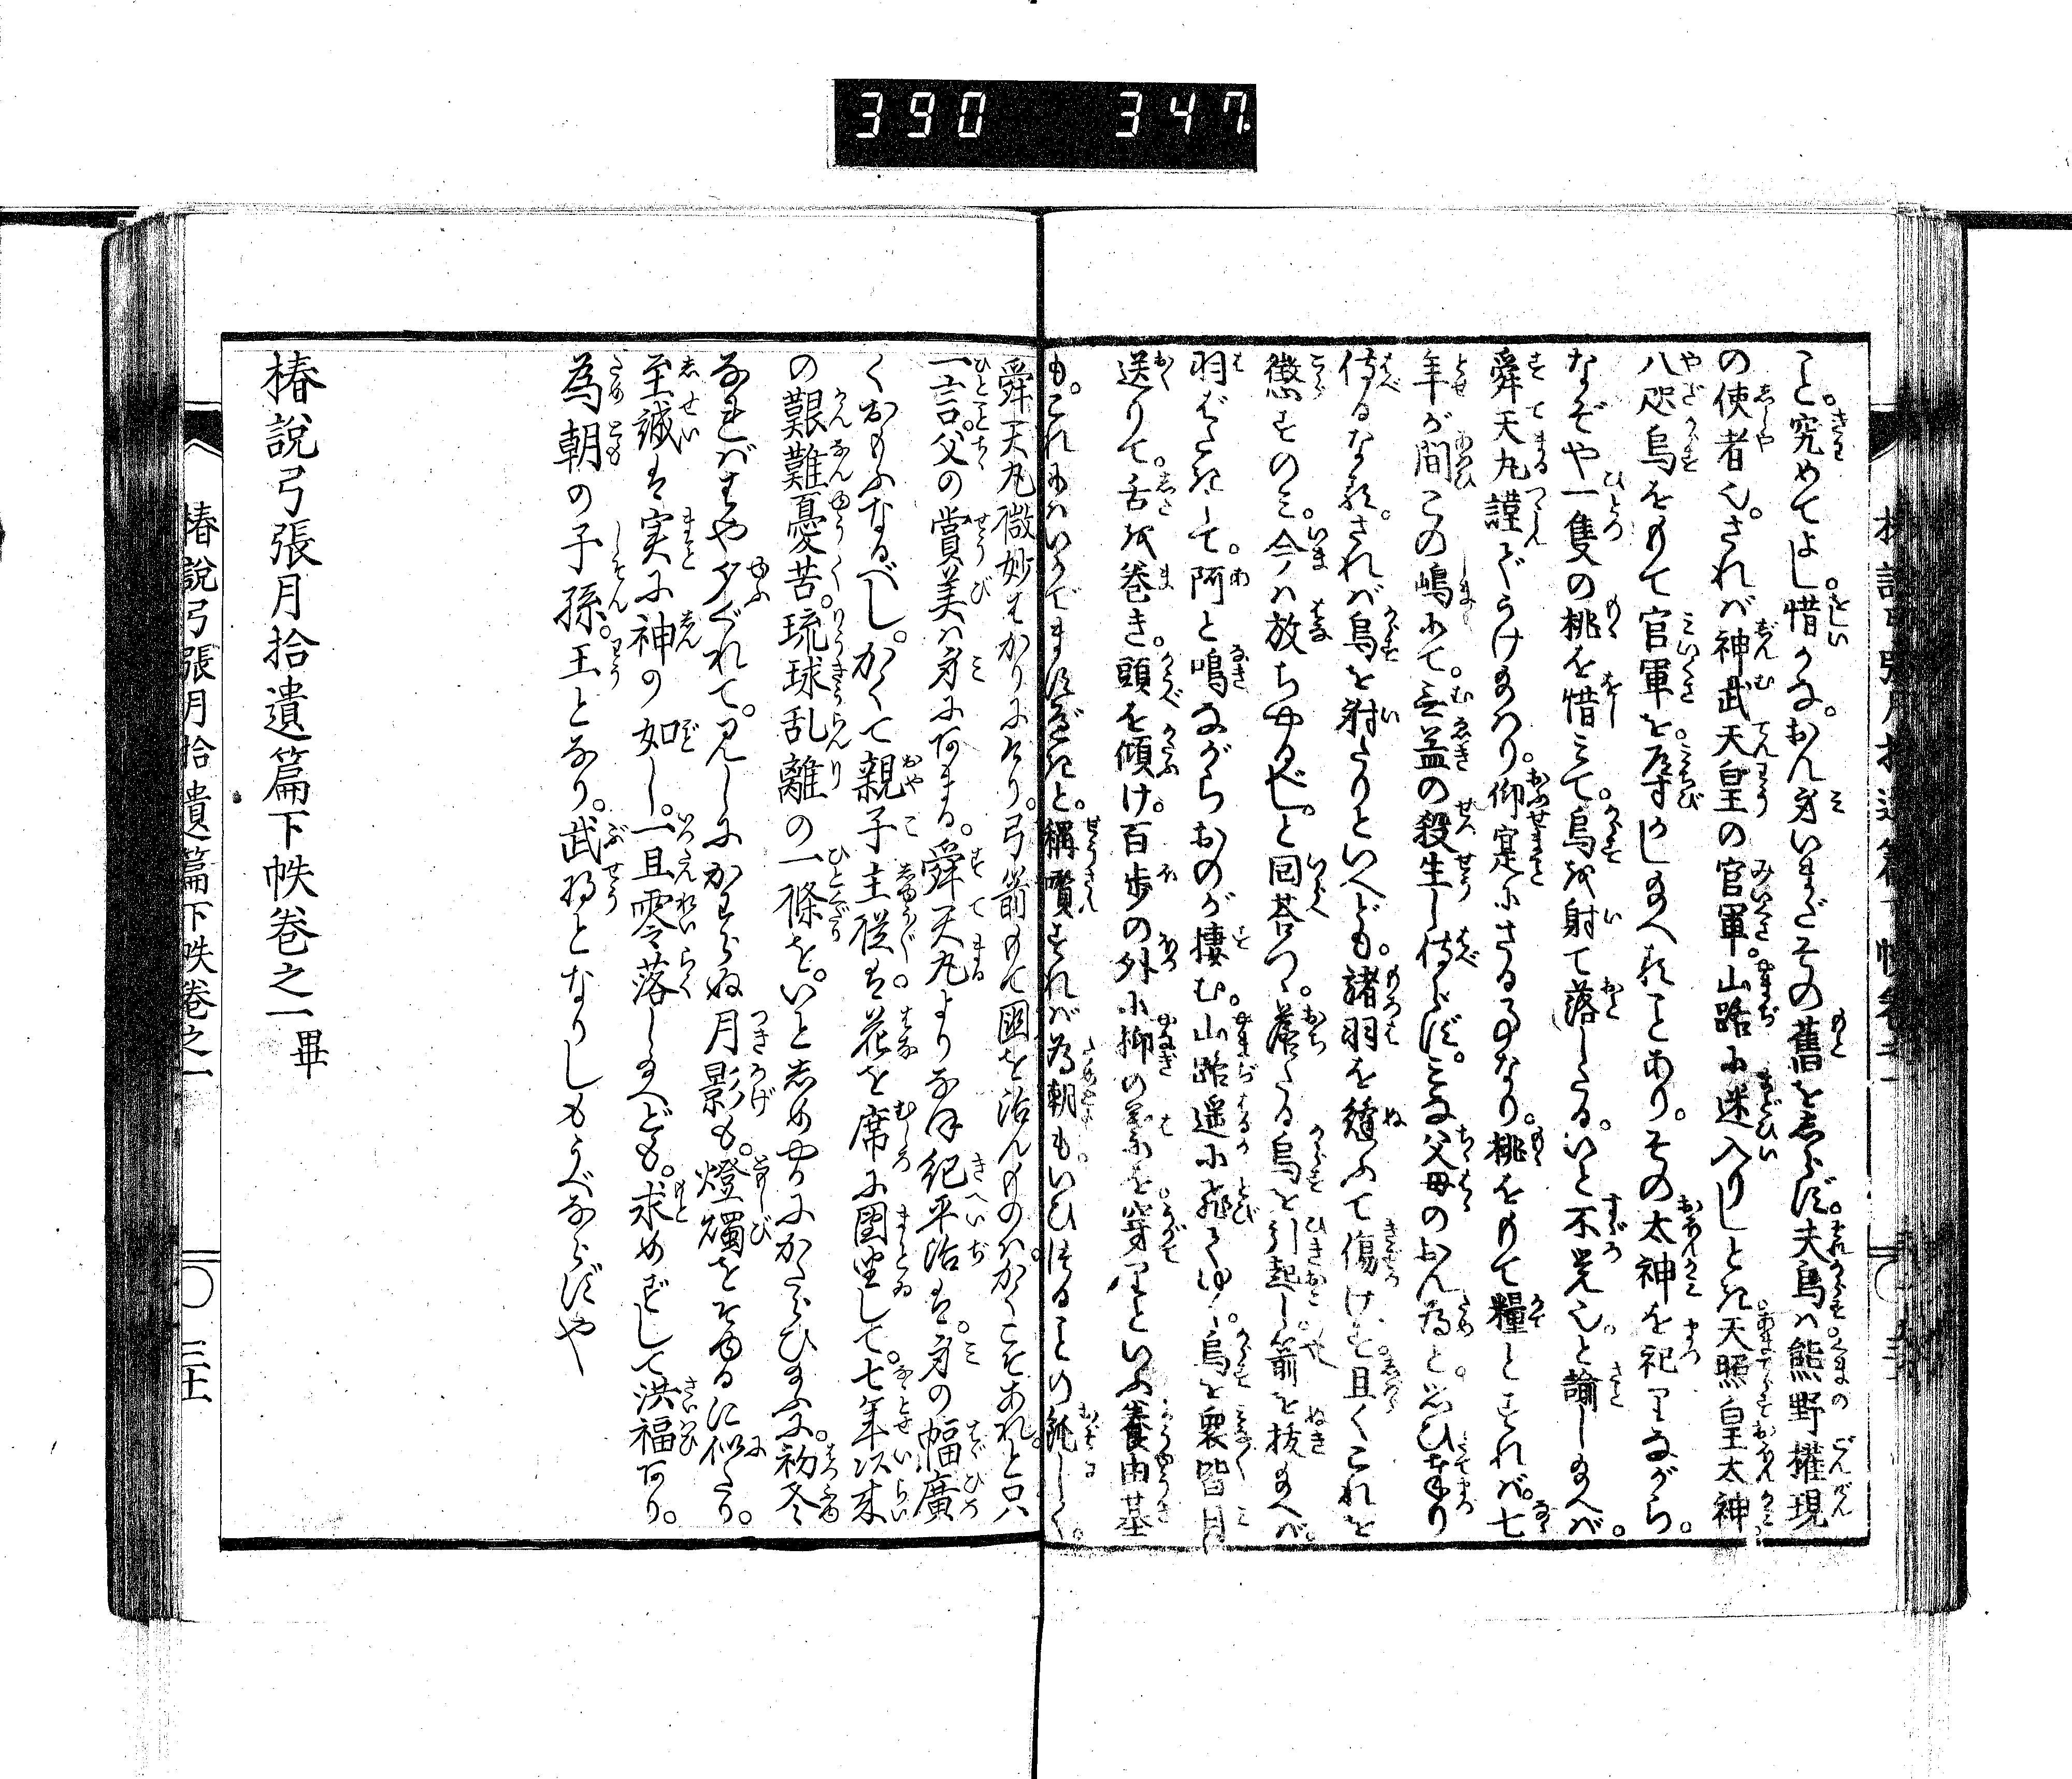 390 347
こと。究めてよし。惜いかな。おん身いまだその舊をしらず。夫烏は熊野權現
の使者也。されば神武天皇の官軍。山路に迷入りしとき天照皇太神
八咫烏をもて官軍を。導かし給へることあり。その太神を祀りながら。
なぞや一隻の桃を惜みて。烏を射て落したる。いと不覚也。と諭し給へば。
舜天丸謹でうけ給はり。仰寔にさる事なり。桃をもて糧とすれば。七
年が間この嶋にて。無益の殺生し侍らず。みな父母のおん為と。思ひ奉り
侍るなる。されば烏を射たりといへども。諸羽を縫ふて傷けず。且くこれを
懲すのみ。今は放ちやるべし。と回荅つゝ。落たる烏を引起し。箭を抜給へば。
羽ばたきして。阿と鳴ながらおのが棲む。山路遥に飛てゆく。烏を衆皆目
送りて。舌を巻き。頭を傾け。百歩の外に柳の葉を穿りといふ養由基
も。これにはいかでますべき。と。稱嘆すれば為朝も。いひつることの観しく。
舜天丸微妙はかりにけり。弓箭もて国を治んものは。かくこそあれと只
一言。父の賞美は身にあまる。舜天丸よりなほ紀平治は。身の幅廣
くおもふなるべし。かくて親子主從は。花を席に團坐して。七年以来
の艱難憂苦。琉球乱離の一條を。いとしめやかにかたらひ給ふに。初冬
なればはや夕ぐれて。見しにかはらぬ月影も。燈燭をそゆるに似たり。
至誠は実に神の如し。一旦零落し給へども。求めずして洪福あり。
為朝の子孫。王となり。武将となりしもうべならずや
椿説弓張月拾遺篇下帙巻之一畢
椿説弓張月拾遺篇下帙巻之一